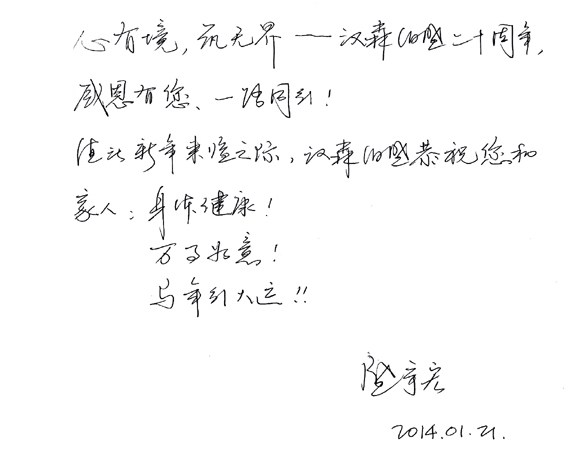 心有境，筑无界——汉森伯盛二十周年，
感恩有您、一路同行！
值此新年来临之际，汉森伯盛恭祝您和
家人：身体健康！
万事如意！
马年行大运！！
盛宇宏
2014.01.21.